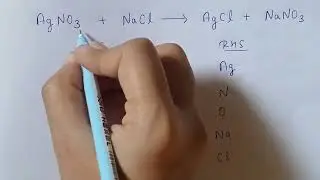 AgNO₃ + NaCl ⟶ AgCl + NaNO₃
RHS
Ag
N
O
Na
Cl